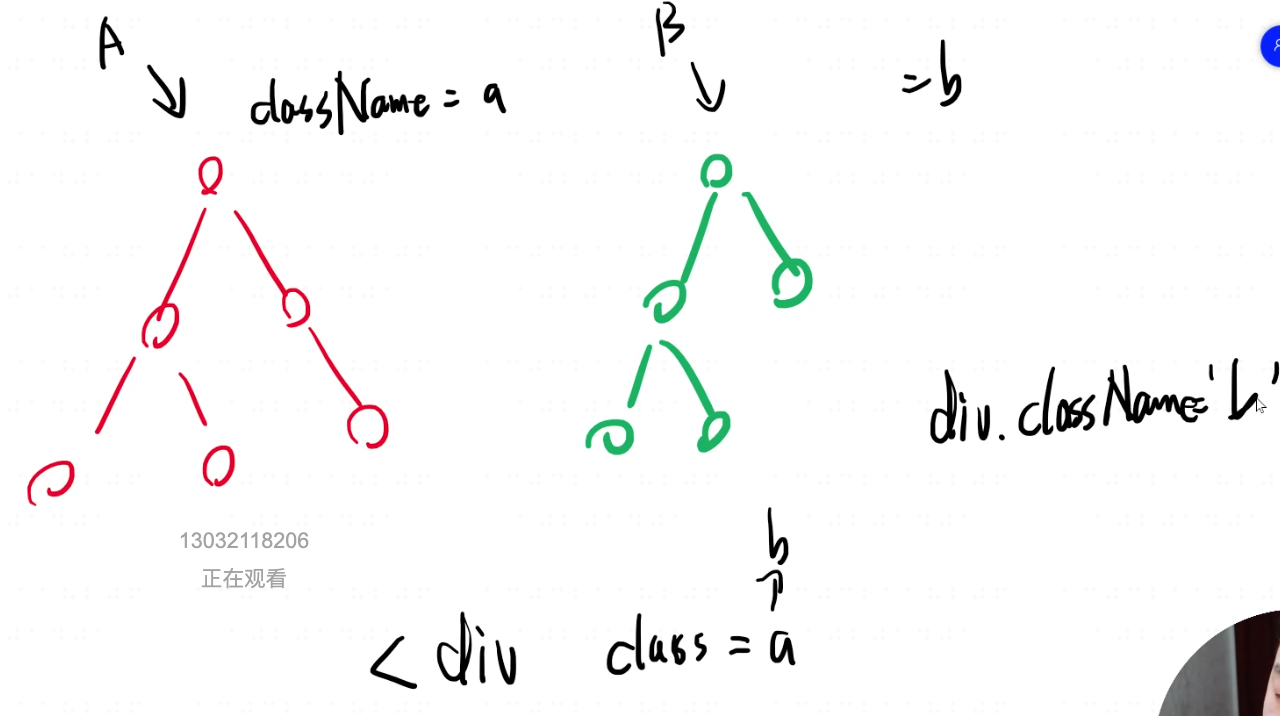 A
B
className = a
= b
div.className='b'
13032118206
正在观看
b
< div class = a